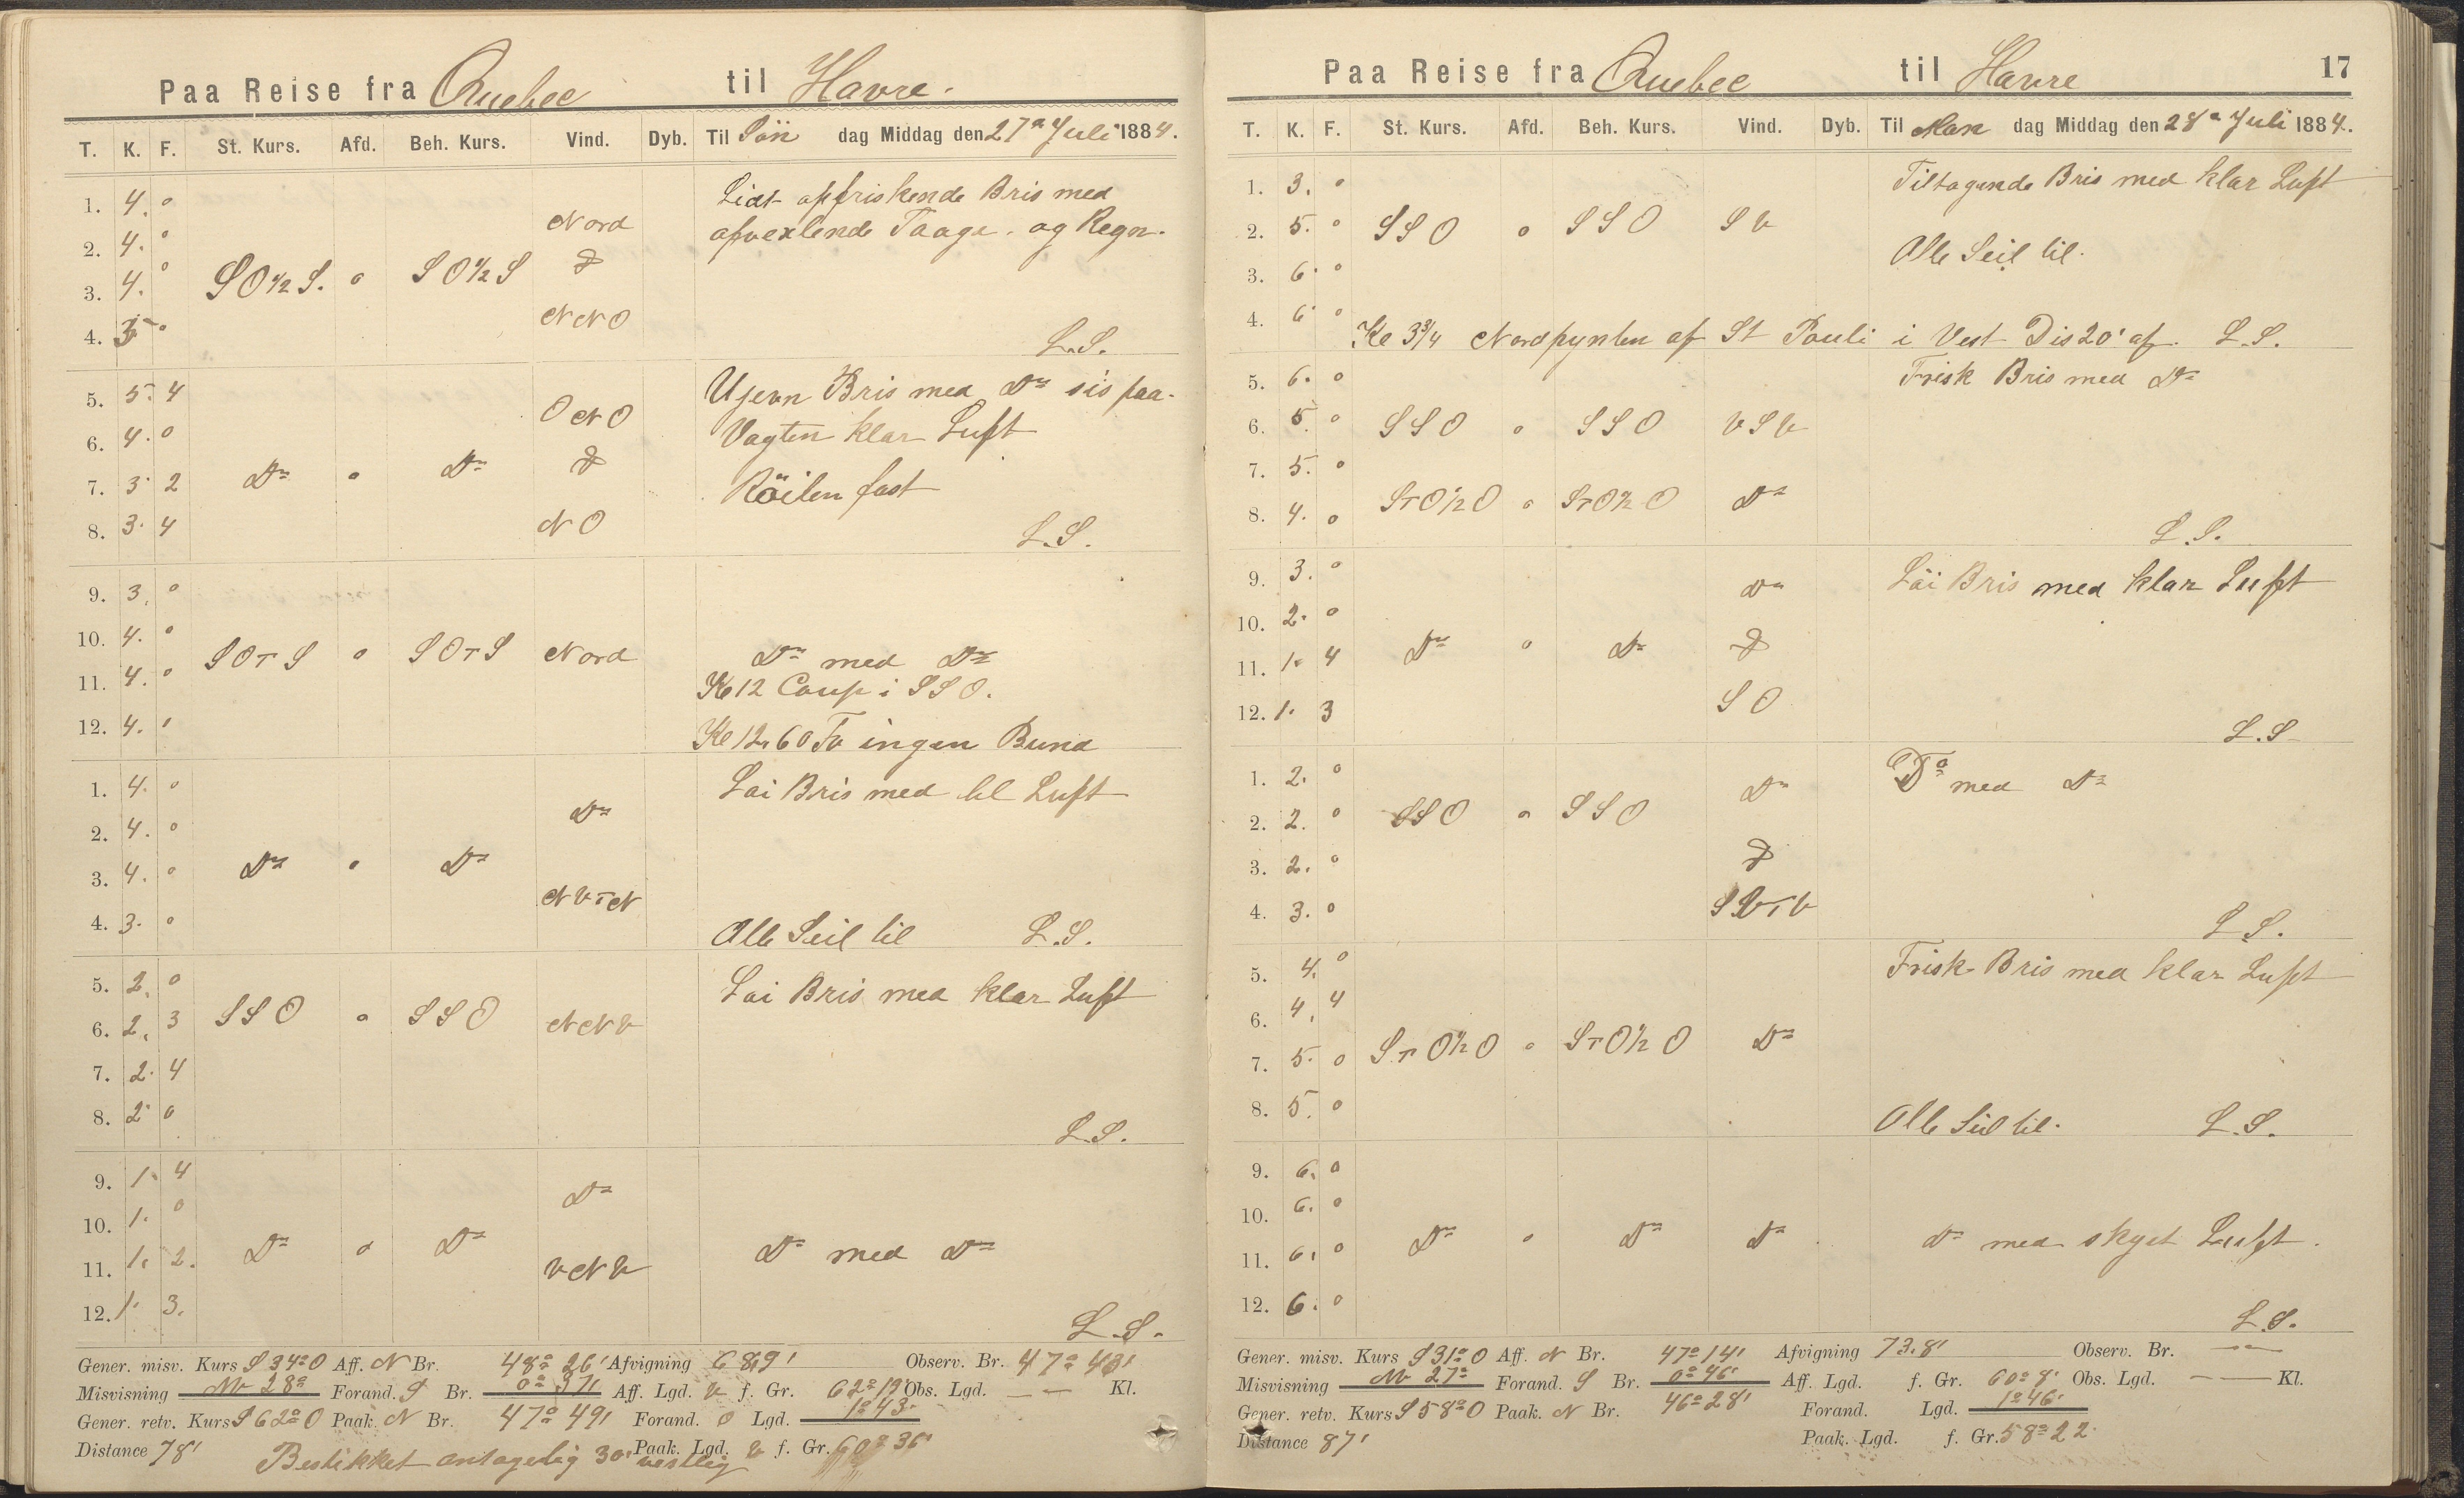 Paa Reise fra Quebec til Havre.
T. K. F. St. Kurs. Afd. Beh. Kurs. Vind. Dyb. Til Sön dag Middag den 27de Juli 1884.
1. 4. 0 Lidt opfriskende Bris med
2. 4. 0 Nord afvexlende Taage. og Regn.
3. 4. 0 SO½S. 0 SO½S &
4. 5 0 NNO L.S.
5. 5. 4 Ujevn Bris med Do sis paa
6. 4. 0 ONO Vagten klar Luft
7. 3. 2 Do 0 Do & Röilen fast
8. 3. 4 NO L.S.
9. 3. 0
10. 4. 0 SOTS 0 SOTS Nord Do med Do
11. 4. 0 Kl 12 Coup i SSO.
12. 4. 1 Kl 12. 60 Fv ingen Bund
1. 4. 0 Lai Bris med kl Luft
2. 4. 0 Do
3. 4. 0 Do 0 Do
4. 3. 0 NVTN Alle Seil til L.S.
5. 2. 0 Lai Bris med klar Luft
6. 2. 3 SSO 0 SSO NNV
7. 2. 4
8. 2. 0 L.S.
9. 1. 4 Do
10. 1. 0
11. 1. 2. Do 0 Do VNV Do med Do
12. 1. 3. L.S.
Gener. misv. Kurs S 34° O Aff. N Br. 48° 26' Afvigning 68,9' Observ. Br. 47° 43'
Misvisning NV 28° Forand. S Br. 0° 37' Aff. Lgd. V f. Gr. 62° 19' Obs. Lgd. — — Kl.
Gener. retv. Kurs S 62° O Paak. N Br. 47° 49' Forand. O Lgd. 1° 43'
Distance 78' Paak. Lgd. V f. Gr. 60° 36'
Bestikket antagelig 30' vestlig
Paa Reise fra Quebec til Havre 17
T. K. F. St. Kurs. Afd. Beh. Kurs. Vind. Dyb. Til Man dag Middag den 28de Juli 1884.
1. 3. 0 Tiltagende Bris med klar Luft
2. 5. 0 SSO 0 SSO SV
3. 6. 0 Alle Seil til.
4. 6 0 Kl 3¾ Nordpynten af St Pauli i Vest Dis 20' af. L.S.
5. 6. 0 Frisk Bris med Do
6. 5. 0 SSO 0 SSO VSV
7. 5. 0
8. 4. 0 STO½O 0 STO½O Do L.S.
9. 3. 0 Do Läi Bris med klar Luft
10. 2. 0
11. 1. 4 Do 0 Do &
12. 1. 3 SO L.S
1. 2. 0 Do Do med Do
2. 2. 0 SSO 0 SSO
3. 2. 0 &
4. 3. 0 SVTV L.S.
5. 4. 0 Frisk Bris med klar Luft
6. 4. 4
7. 5. 0 STO½O 0 STO½O Do
8. 5. 0 Alle Seil til. L.S.
9. 6. 0
10. 6. 0
11. 6. 0 Do 0 Do Do do med skyet Luft.
12. 6. 0 L.S.
Gener. misv. Kurs S 31° O Aff. N Br. 47° 14' Afvigning 73.8' Observ. Br. — —
Misvisning NV 27° Forand. S Br. 0° 46' Aff. Lgd. f. Gr. 60° 8' Obs. Lgd. — — Kl.
Gener. retv. Kurs S 58° O Paak. N Br. 46° 28' Forand. Lgd. 1° 46'
Distance 87' Paak. Lgd. f. Gr. 58° 22'